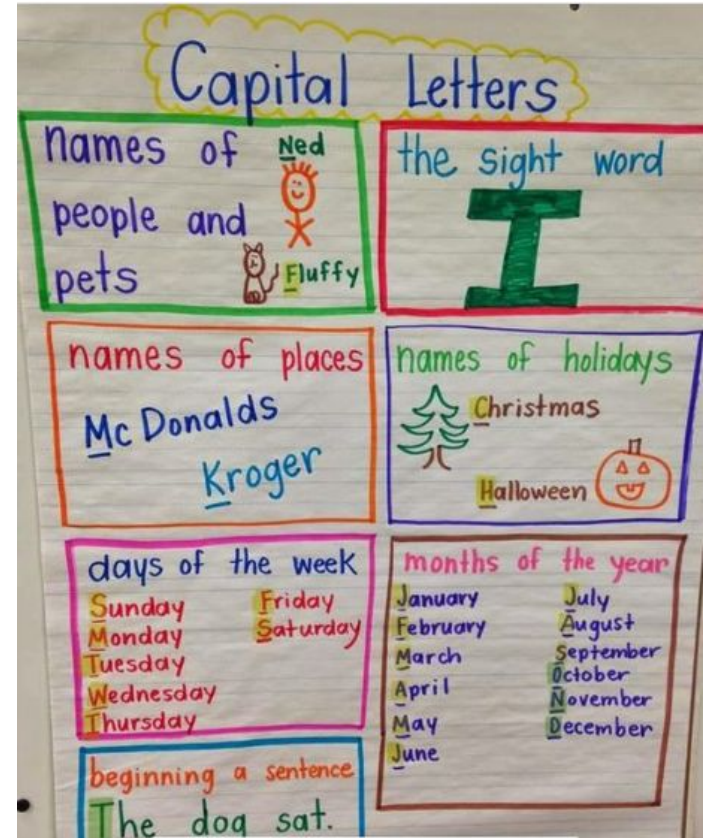 Capital Letters
names of Ned
people and
pets Fluffy
the sight word
I
names of places
McDonalds
Kroger
names of holidays
Christmas
Halloween
days of the week
Sunday
Monday
Tuesday
Wednesday
Thursday
Friday
Saturday
months of the year
January
February
March
April
May
June
July
August
September
October
November
December
beginning a sentence
The dog sat.